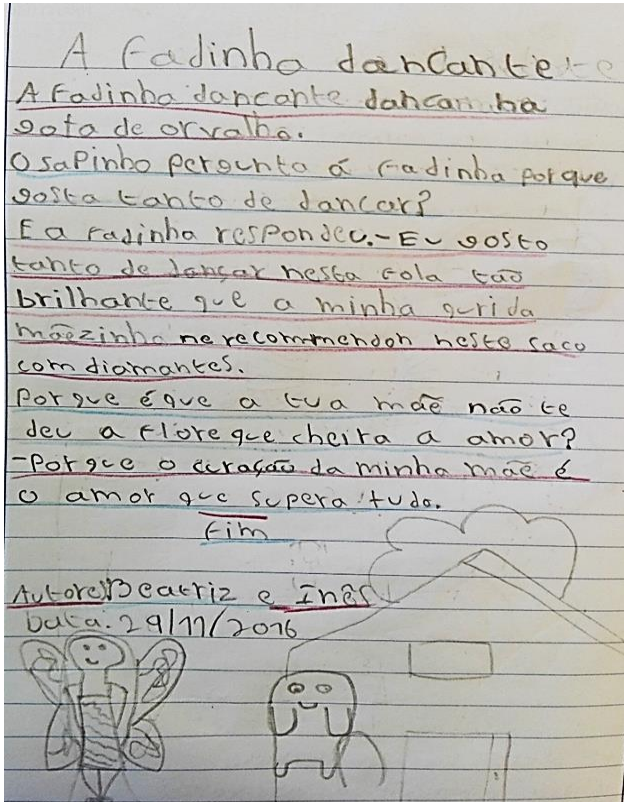 A fadinha dançante
A fadinha dançante dançam na
gota de orvalho.
O sapinho pergunta á fadinha porque
gosta tanto de dançar?
E a fadinha respondeu.-Eu gosto
tanto de dançar nesta gota tão
brilhante que a minha qurida
mãezinha me recommendon neste saco
com diamantes.
Porque é que a tua mãe não te
deu a flore que cheira a amor?
-Porque o curação da minha mãe é
o amor que supera tudo.
Fim
Autores Beatriz e Inês
Data: 29/11/2016